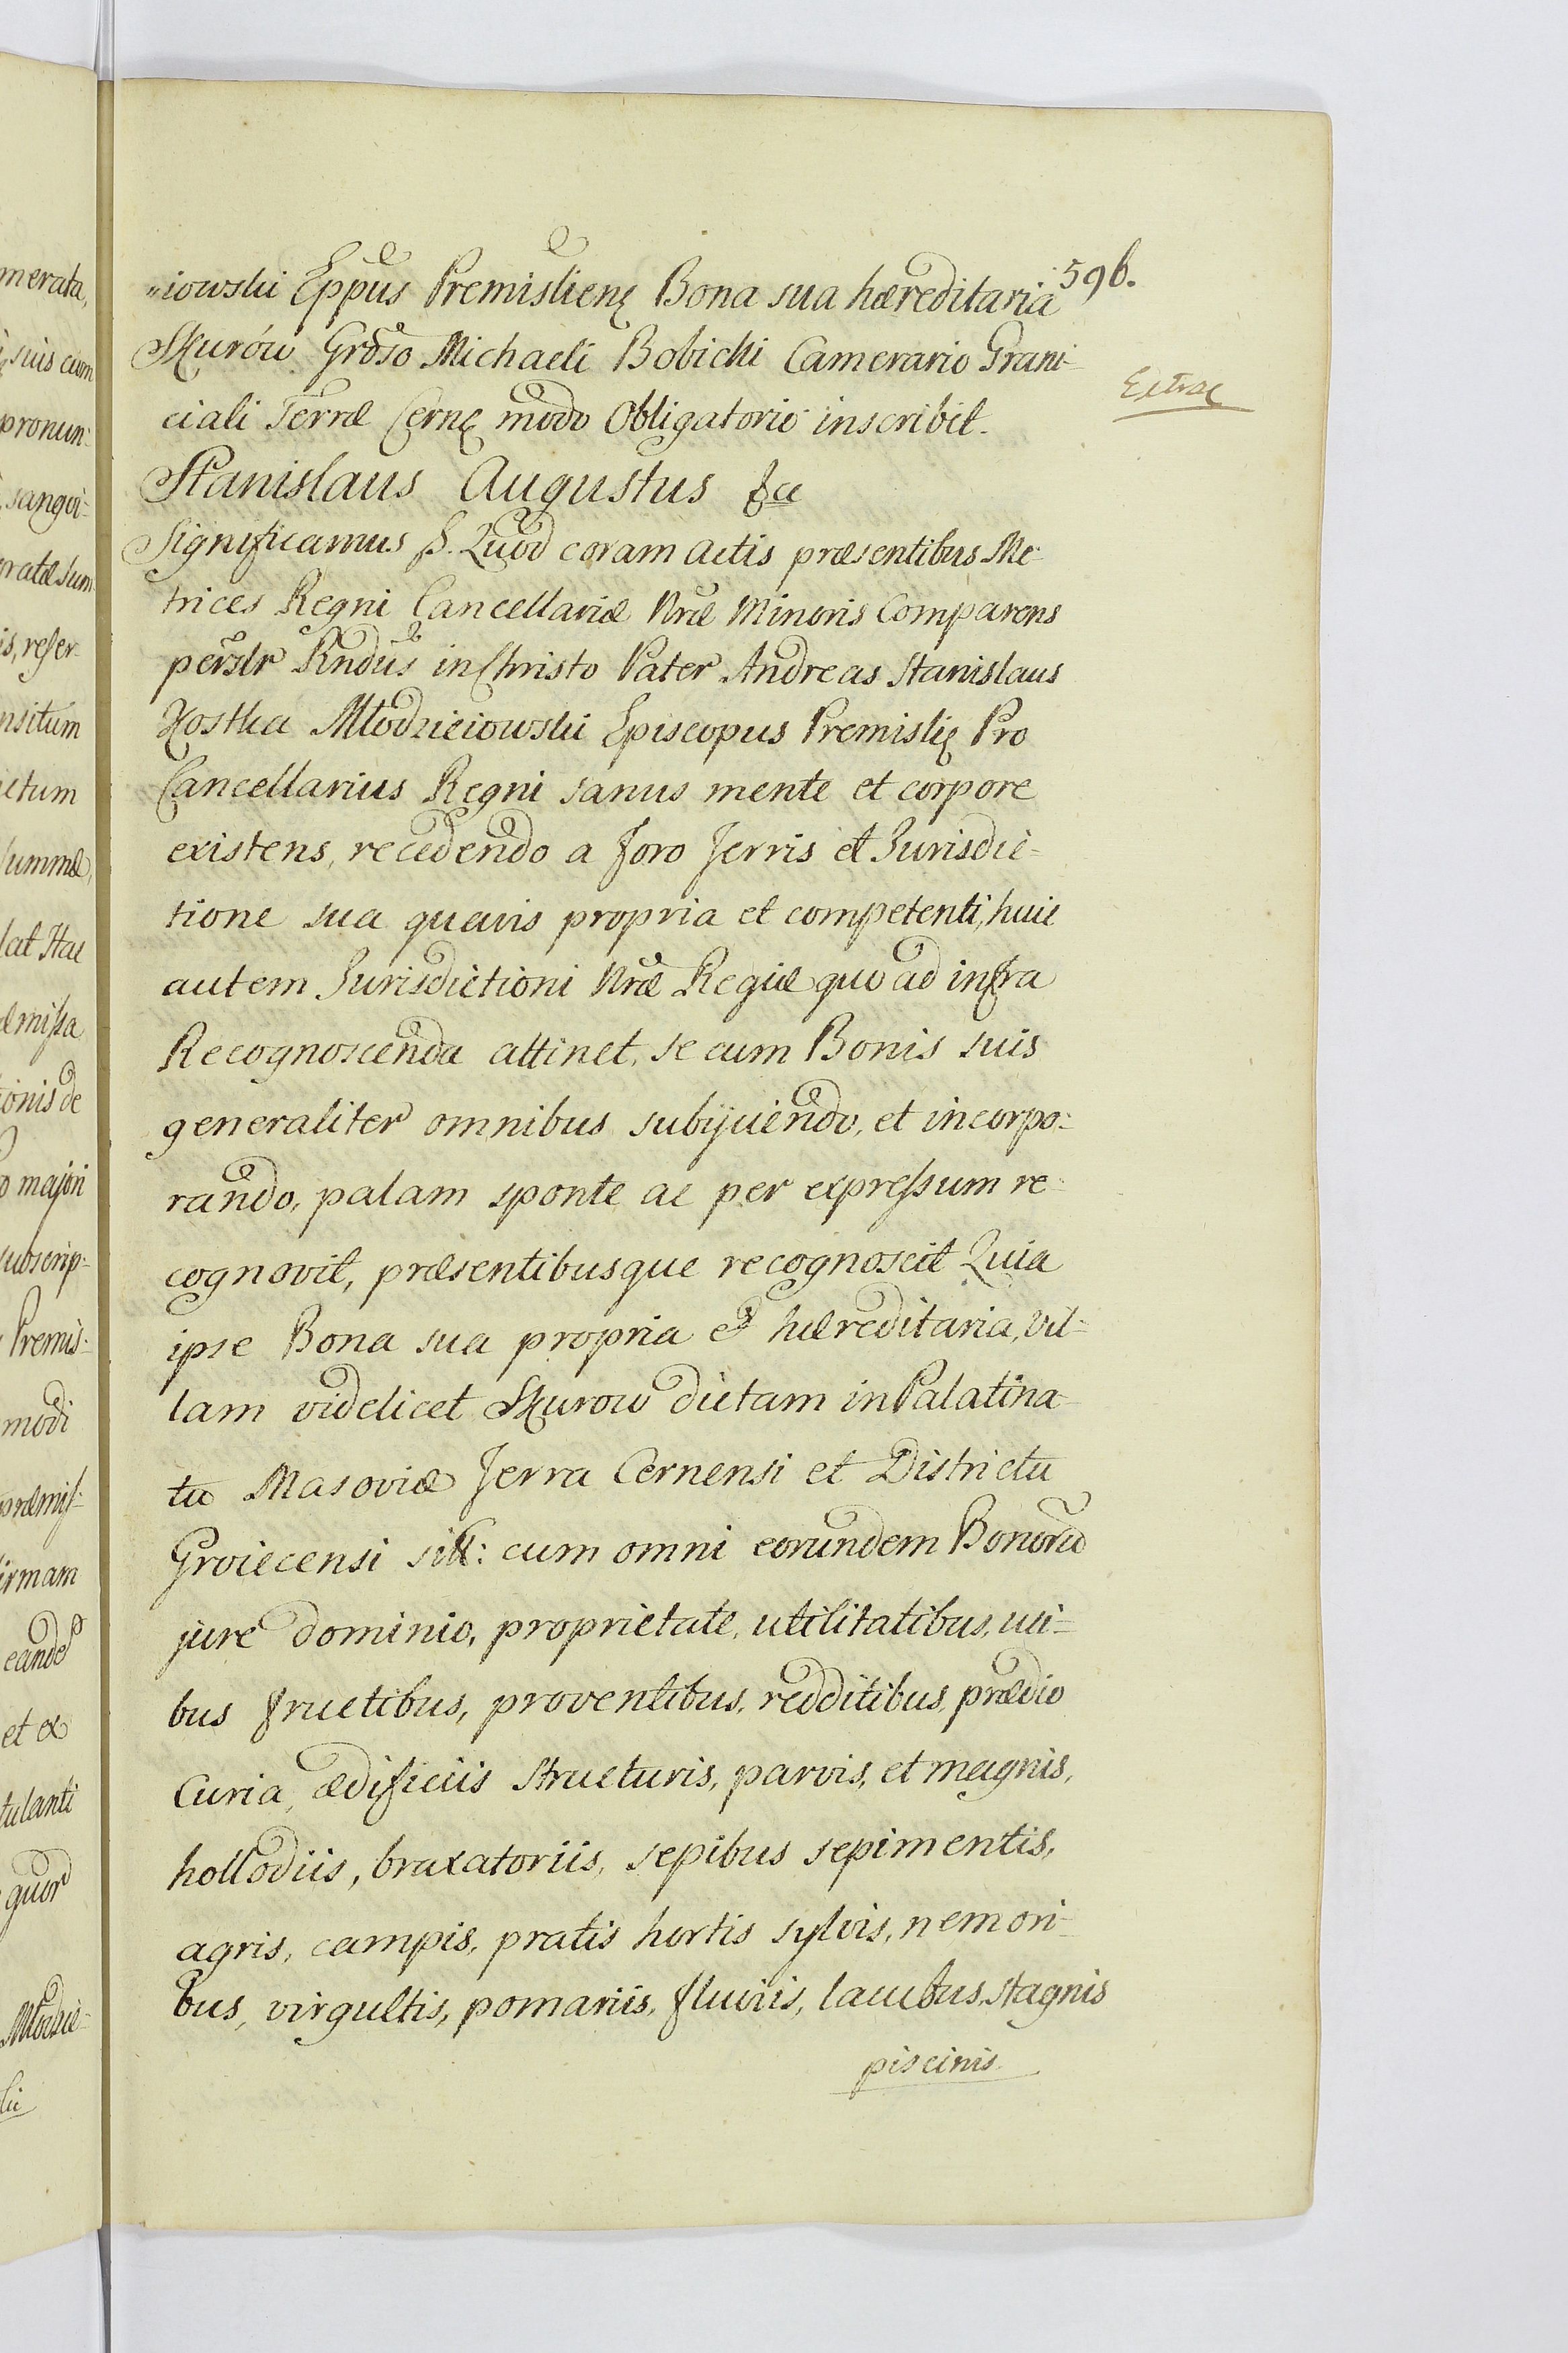 596.
„iowski Eppus Premislien Bona sua hæreditaria
Skurów Groso Michaeli Bobicki Camerario Grani-
ciali Terræ Cern modo Obligatorio inscribit.
Extrac
Stanislaus Augustus
Significamus &. Quod coram Actis præsentibus Me-
trices Regni Cancellariæ Nræ Minoris Comparens
persłr Rndus in Christo Pater Andreas Stanislaus
Kostka Młodzieiowski Episcopus Premisli Pro
Cancellarius Regni sanus mente et corpore
existens, recedendo a foro Terris et Jurisdic-
tione sua quavis propria et competenti, huic
autem Jurisdictioni Nræ Regiæ quo ad infra
Recognoscenda attinet, se cum Bonis suis
generaliter omnibus subijciendo, et incorpo-
rando, palam sponte ac per expressum re-
cognovit, præsentibusque recognoscit Quia
ipse Bona sua propria et hæreditaria, vil-
lam videlicet Skurow dictam in Palatina-
tu Masoviæ Terra Cernensi et Districtu
Groiecensi sitt: cum omni eorundem Bonoru
jure dominio, proprietate, utilitatibus, usi-
bus fructibus, proventibus, redditibus, prædio
Curia, ædificiis structuris, parvis, et magnis,
hollodiis, braxatoriis, sepibus sepimentis,
agris, campis, pratis hortis sylvis, nemori-
bus, virgultis, pomariis, fluviis, lacubus, stagnis
piscinis
merata,
suis cum
pronun:
sangvi-
ratæ sum
is, refer-
nsitum
ictum
summæ,
lat Hac
æmissa
ionis de
o majori
subscrip-
Premis-
modi
præmis-
irmam
eande
et ex
tulanti
quor
Młodzie-